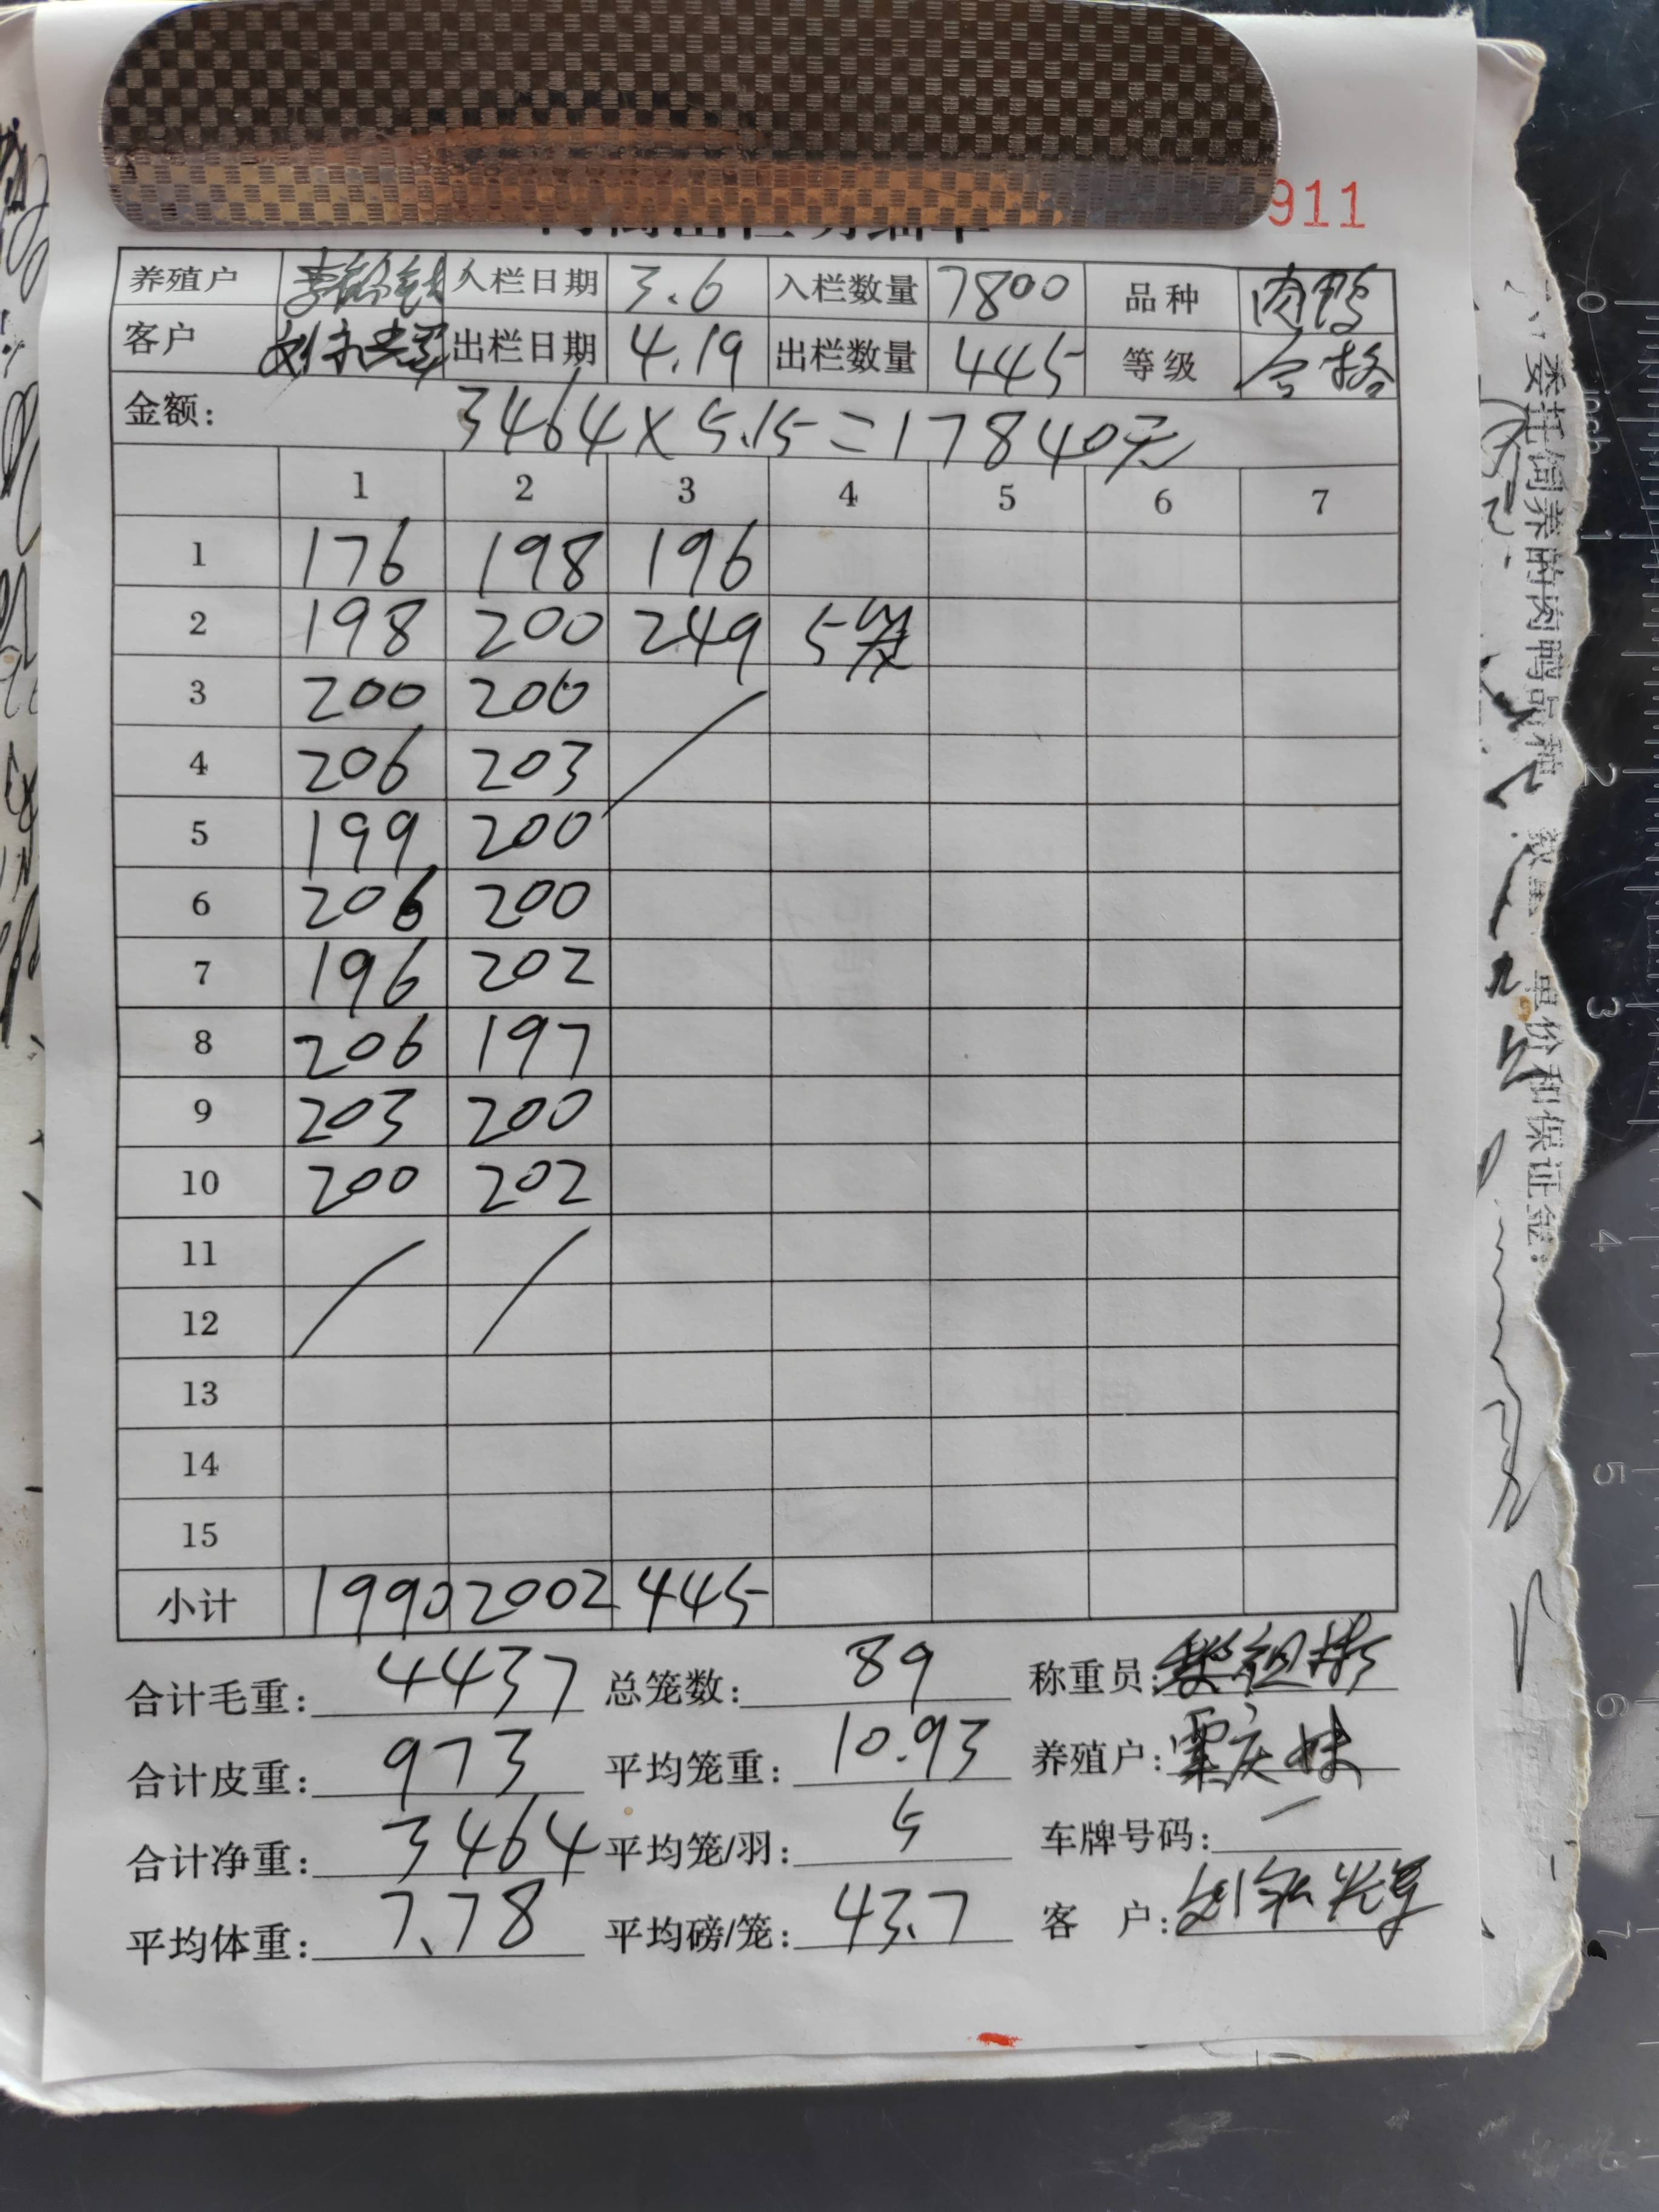 911
养殖户 入栏日期 3.6 入栏数量 7800 品种 肉鸭
客户 出栏日期 4.19 出栏数量 445 等级 合格
金额: 3464×5.15=17840元
1 2 3 4 5 6 7
1 176 198 196
2 198 200 249 5笼
3 200 200
4 206 203
5 199 200
6 206 200
7 196 202
8 206 197
9 203 200
10 200 202
11
12
13
14
15
小计 1990 2002 445
合计毛重: 4437 总笼数: 89 称重员:
合计皮重: 973 平均笼重: 10.93 养殖户: 覃庆妹
合计净重: 3464 平均笼/羽: 5 车牌号码: 一
平均体重: 7.78 平均磅/笼: 43.7 客 户:
委托饲养的肉鸭品种 单价和保证金:
0 inch 1 2 3 4 5 6 7